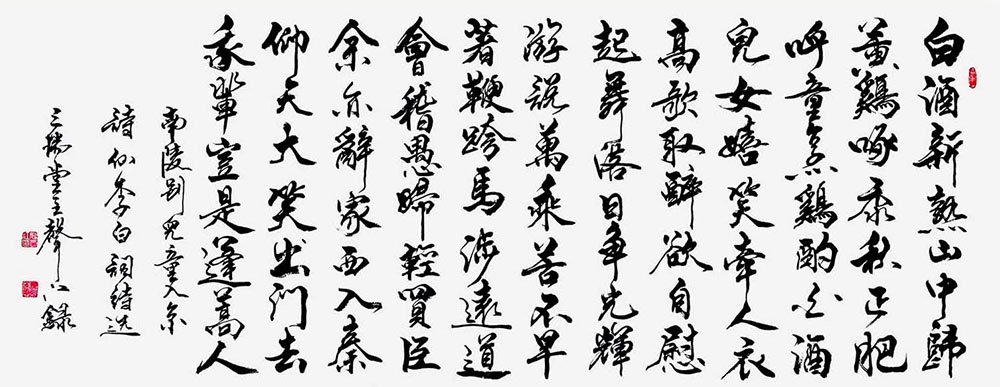 白酒新熟山中歸
黄鷄啄黍秋正肥
呼童烹鷄酌白酒
兒女嬉笑牽人衣
高歌取醉欲自慰
起舞落日争光輝
游説萬乘苦不早
著鞭跨馬涉遠道
會稽愚婦輕買臣
余亦辭家西入秦
仰天大笑出門去
我輩豈是蓬蒿人
南陵别兒童入京
詩仙李白詞詩选
三瑞堂主聲録